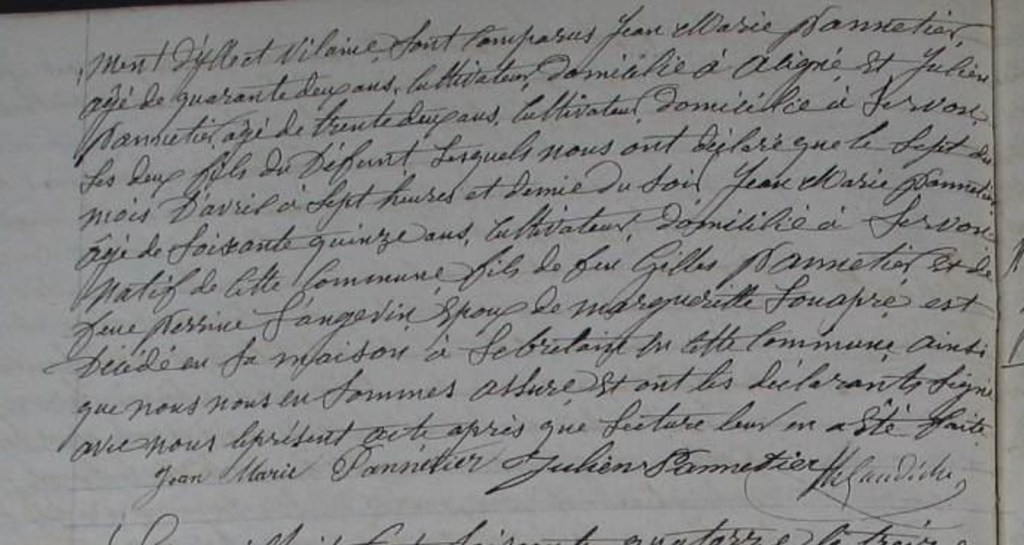 ment d'ylle et Vilaine, sont comparus Jean Marie Pannetier,
agé de quarante deux ans, Cultivateur, domicilié à Aligné, Et Julien
Pannetier, agé de trente deux ans, Cultivateur, domicilié à Servon,
les deux fils du Défunt, Lesquels nous ont déclaré que le Sept du
mois D'avril à Sept heures et demie du Soir, Jean Marie Pannetier,
agé de Soixante quinze ans, Cultivateur, domicilié à Servon
Natif de Cette Commune, fils de feu Gilles Pannetier et de
feue Perrine Langevin, Epoux de margueritte Louapré est
Décédé en Sa maison à en Cette Commune, ainsi
que nous nous en Sommes assuré, Et ont les déclarants Signé
avec nous le présent acte après que Lecture leur en a Eté faite.
Jean Marie Pannetier Julien Pannetier
Soixante quatorze le treize